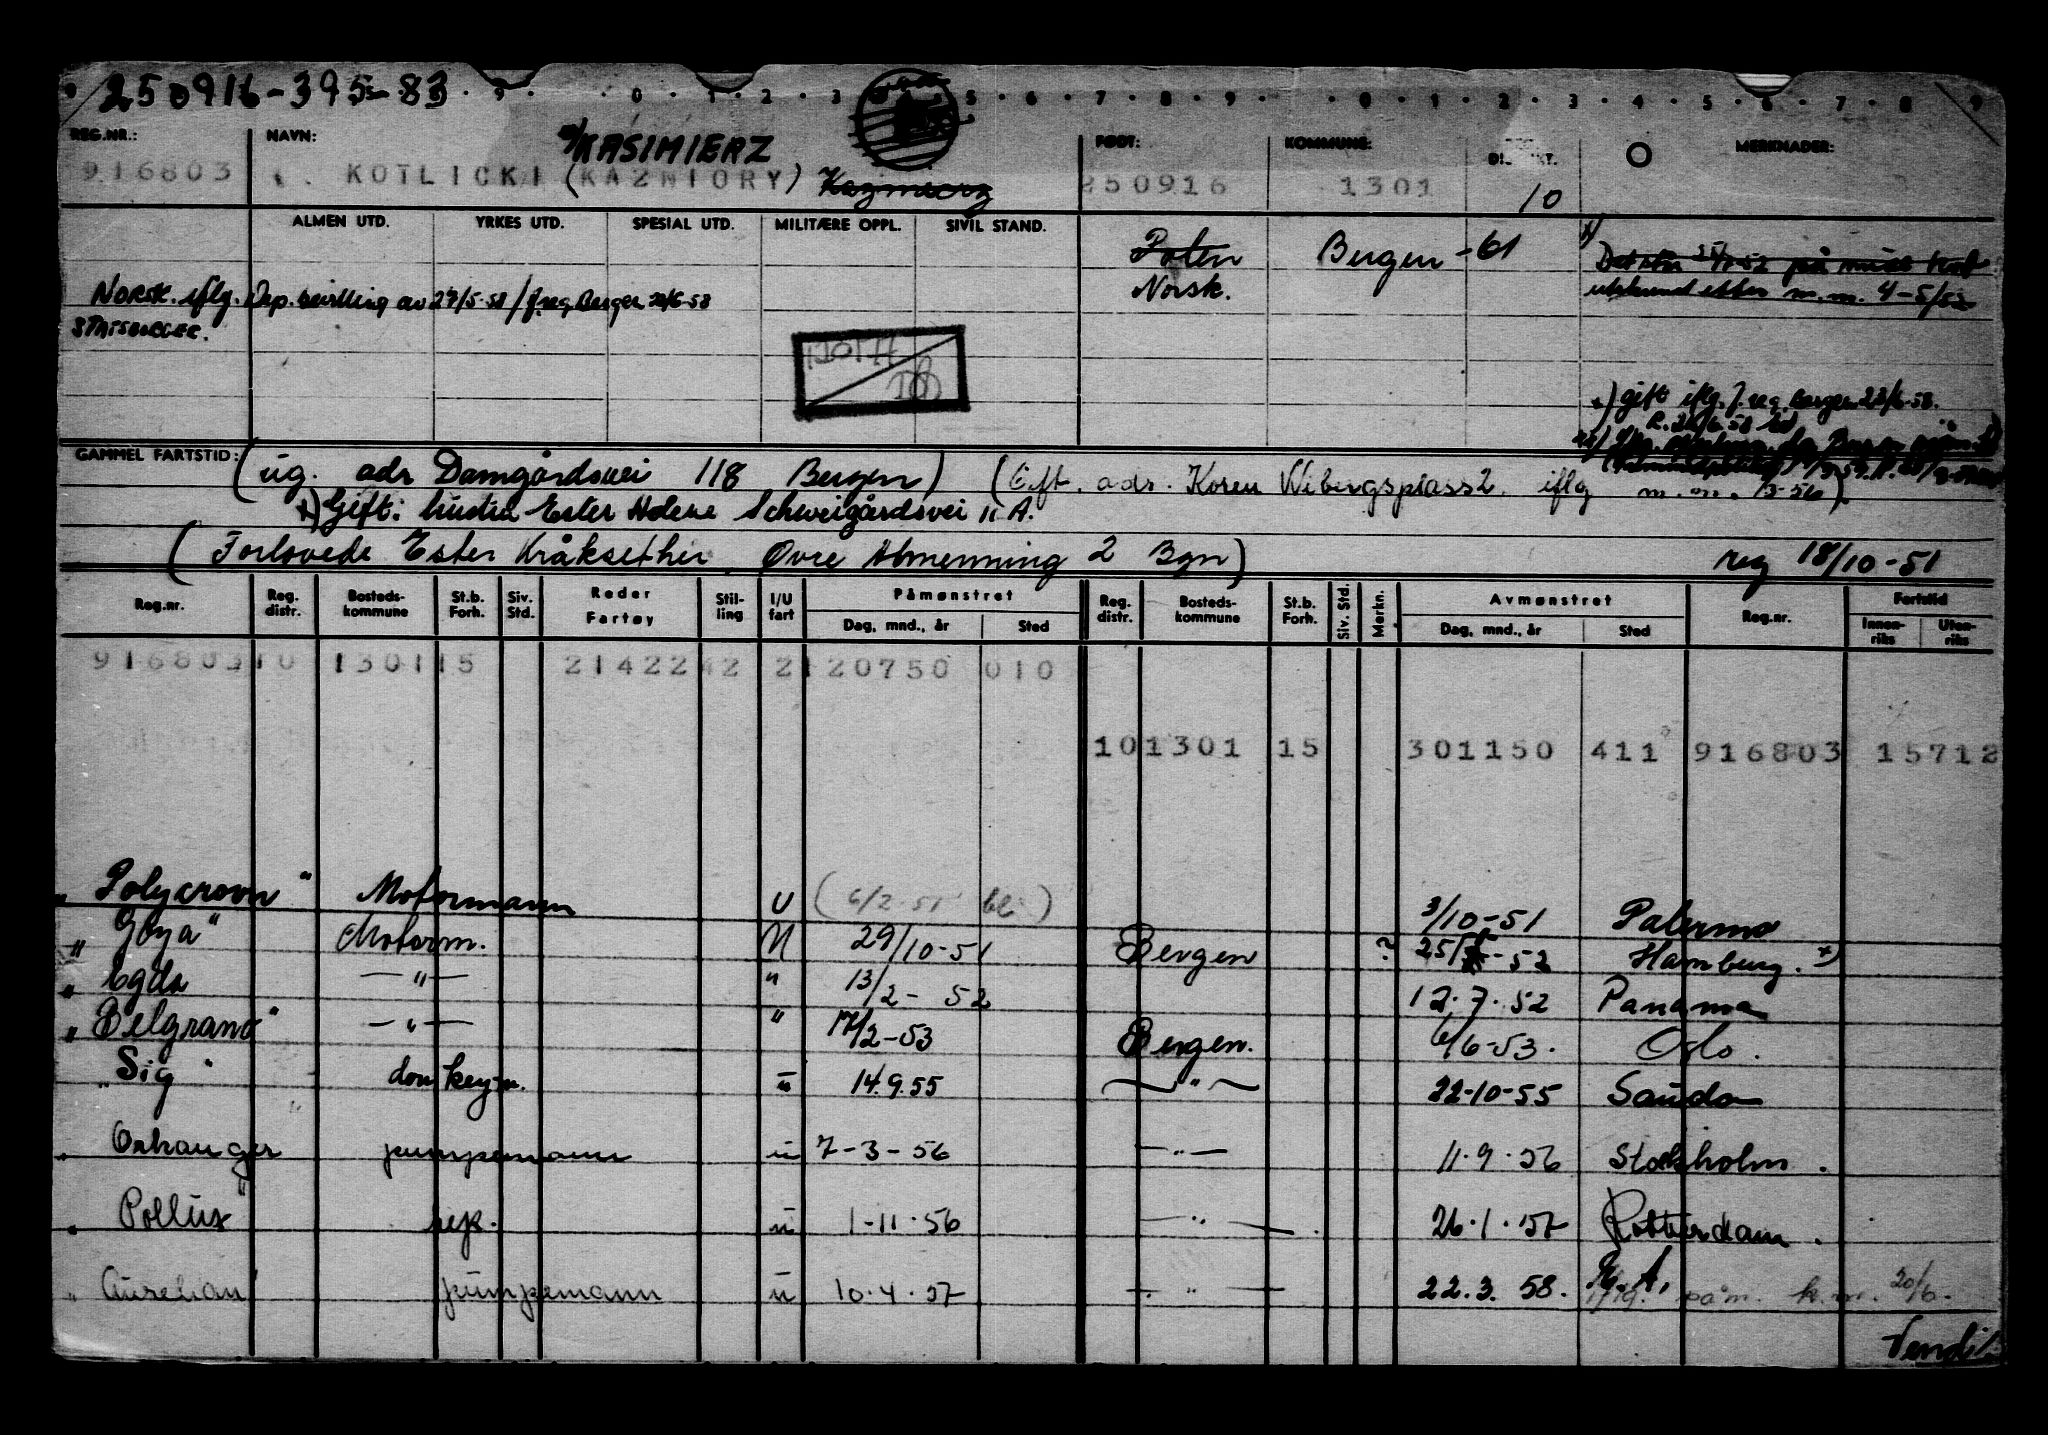 250916-395-83
REG.NR.: NAVN: FØDT: KOMMUNE: MERKNADER:
KASIMIERZ
916803 KOTLICKI (KAZMIORY) Kazmierz 250916 1301 10
ALMEN UTD. YRKES UTD. SPESIAL UTD. MILITÆRE OPPL. SIVIL STAND.
Polen Bergen -61
Norsk.
Det står på
utskrevet etter m.m. 4-5/52
Norsk iflg. Dep. bevilling av 29/5-58 / J.reg. Bergen 20/6-58
x) gift iflg. J. reg. Bergen 23/6-58.
GAMMEL FARTSTID: (ug. adr Damgårdsvei 118 Bergen) (Gift. adr. Koren Wibergsplass 2. iflg m.m. /3-56)
x) Gift: hustru Ester Helene Schweigårdsvei 11 A.
(Forlovede Ester Kråksether Øvre Almenning 2 Bgn) reg 18/10-51
Reg.nr. Reg. distr. Bosteds- kommune St.b. Forh. Siv. Std. Reder Fartøy Stil- ling I/U fart Påmønstret Dag, mnd., år Sted Reg. distr. Bosteds- kommune St.b. Forh. Siv. Std. Merkn. Avmønstret Dag, mnd., år Sted Reg.nr. Fartstid Innen- riks Uten- riks
916803 10 1301 15 2142242 2 120750 010
10 1301 15 301150 411 916803 15712
"Polycrown" Motormann U (6/2-51 bl.) 3/10-51 Palermo
"Goya" Motorm. U 29/10-51 Bergen ? 25/ -52 Hamburg. x)
" Egda — " — " 13/2-52 12.7.52 Panama
"Belgrano" — " — " 17/2-53 Bergen. 6/6-53. Oslo.
"Sig" donkeym. u 14.9.55 — " — 22-10-55 Sauda
" Orkanger pumpemann u 7-3-56 — " — 11.9.56 Stockholm.
" Pollux" rep. u 1-11-56 — " — 26.1.57 Rotterdam.
" Aurelian pumpemann u 10.4.57 — " — 22.3.58. påm. k.m. 20/6.
Vendt